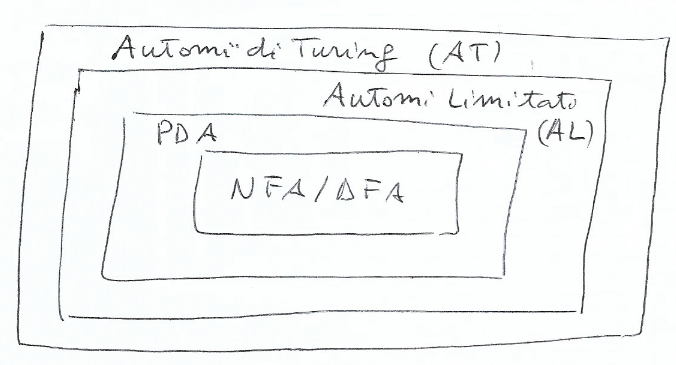 Automi di Turing (AT)
Automi Limitato
(AL)
PDA
NFA/DFA